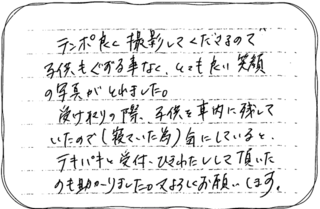 テンポ良く撮影してくださるので
子供もぐずる事なく、とても良い笑顔
の写真がとれました。
受け取りの際、子供を車内に残して
いたので(寝ていた為)気にしていると、
テキパキと受付、ひきわたしして頂いた
のも助かりました。よろしくお願いします。